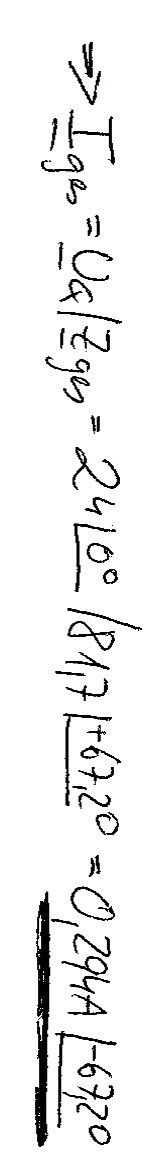 ⇒ I̲ges = U̲q/Z̲ges = 24∠0° /81,7∠+67,2° = 0,294A∠-67,2°